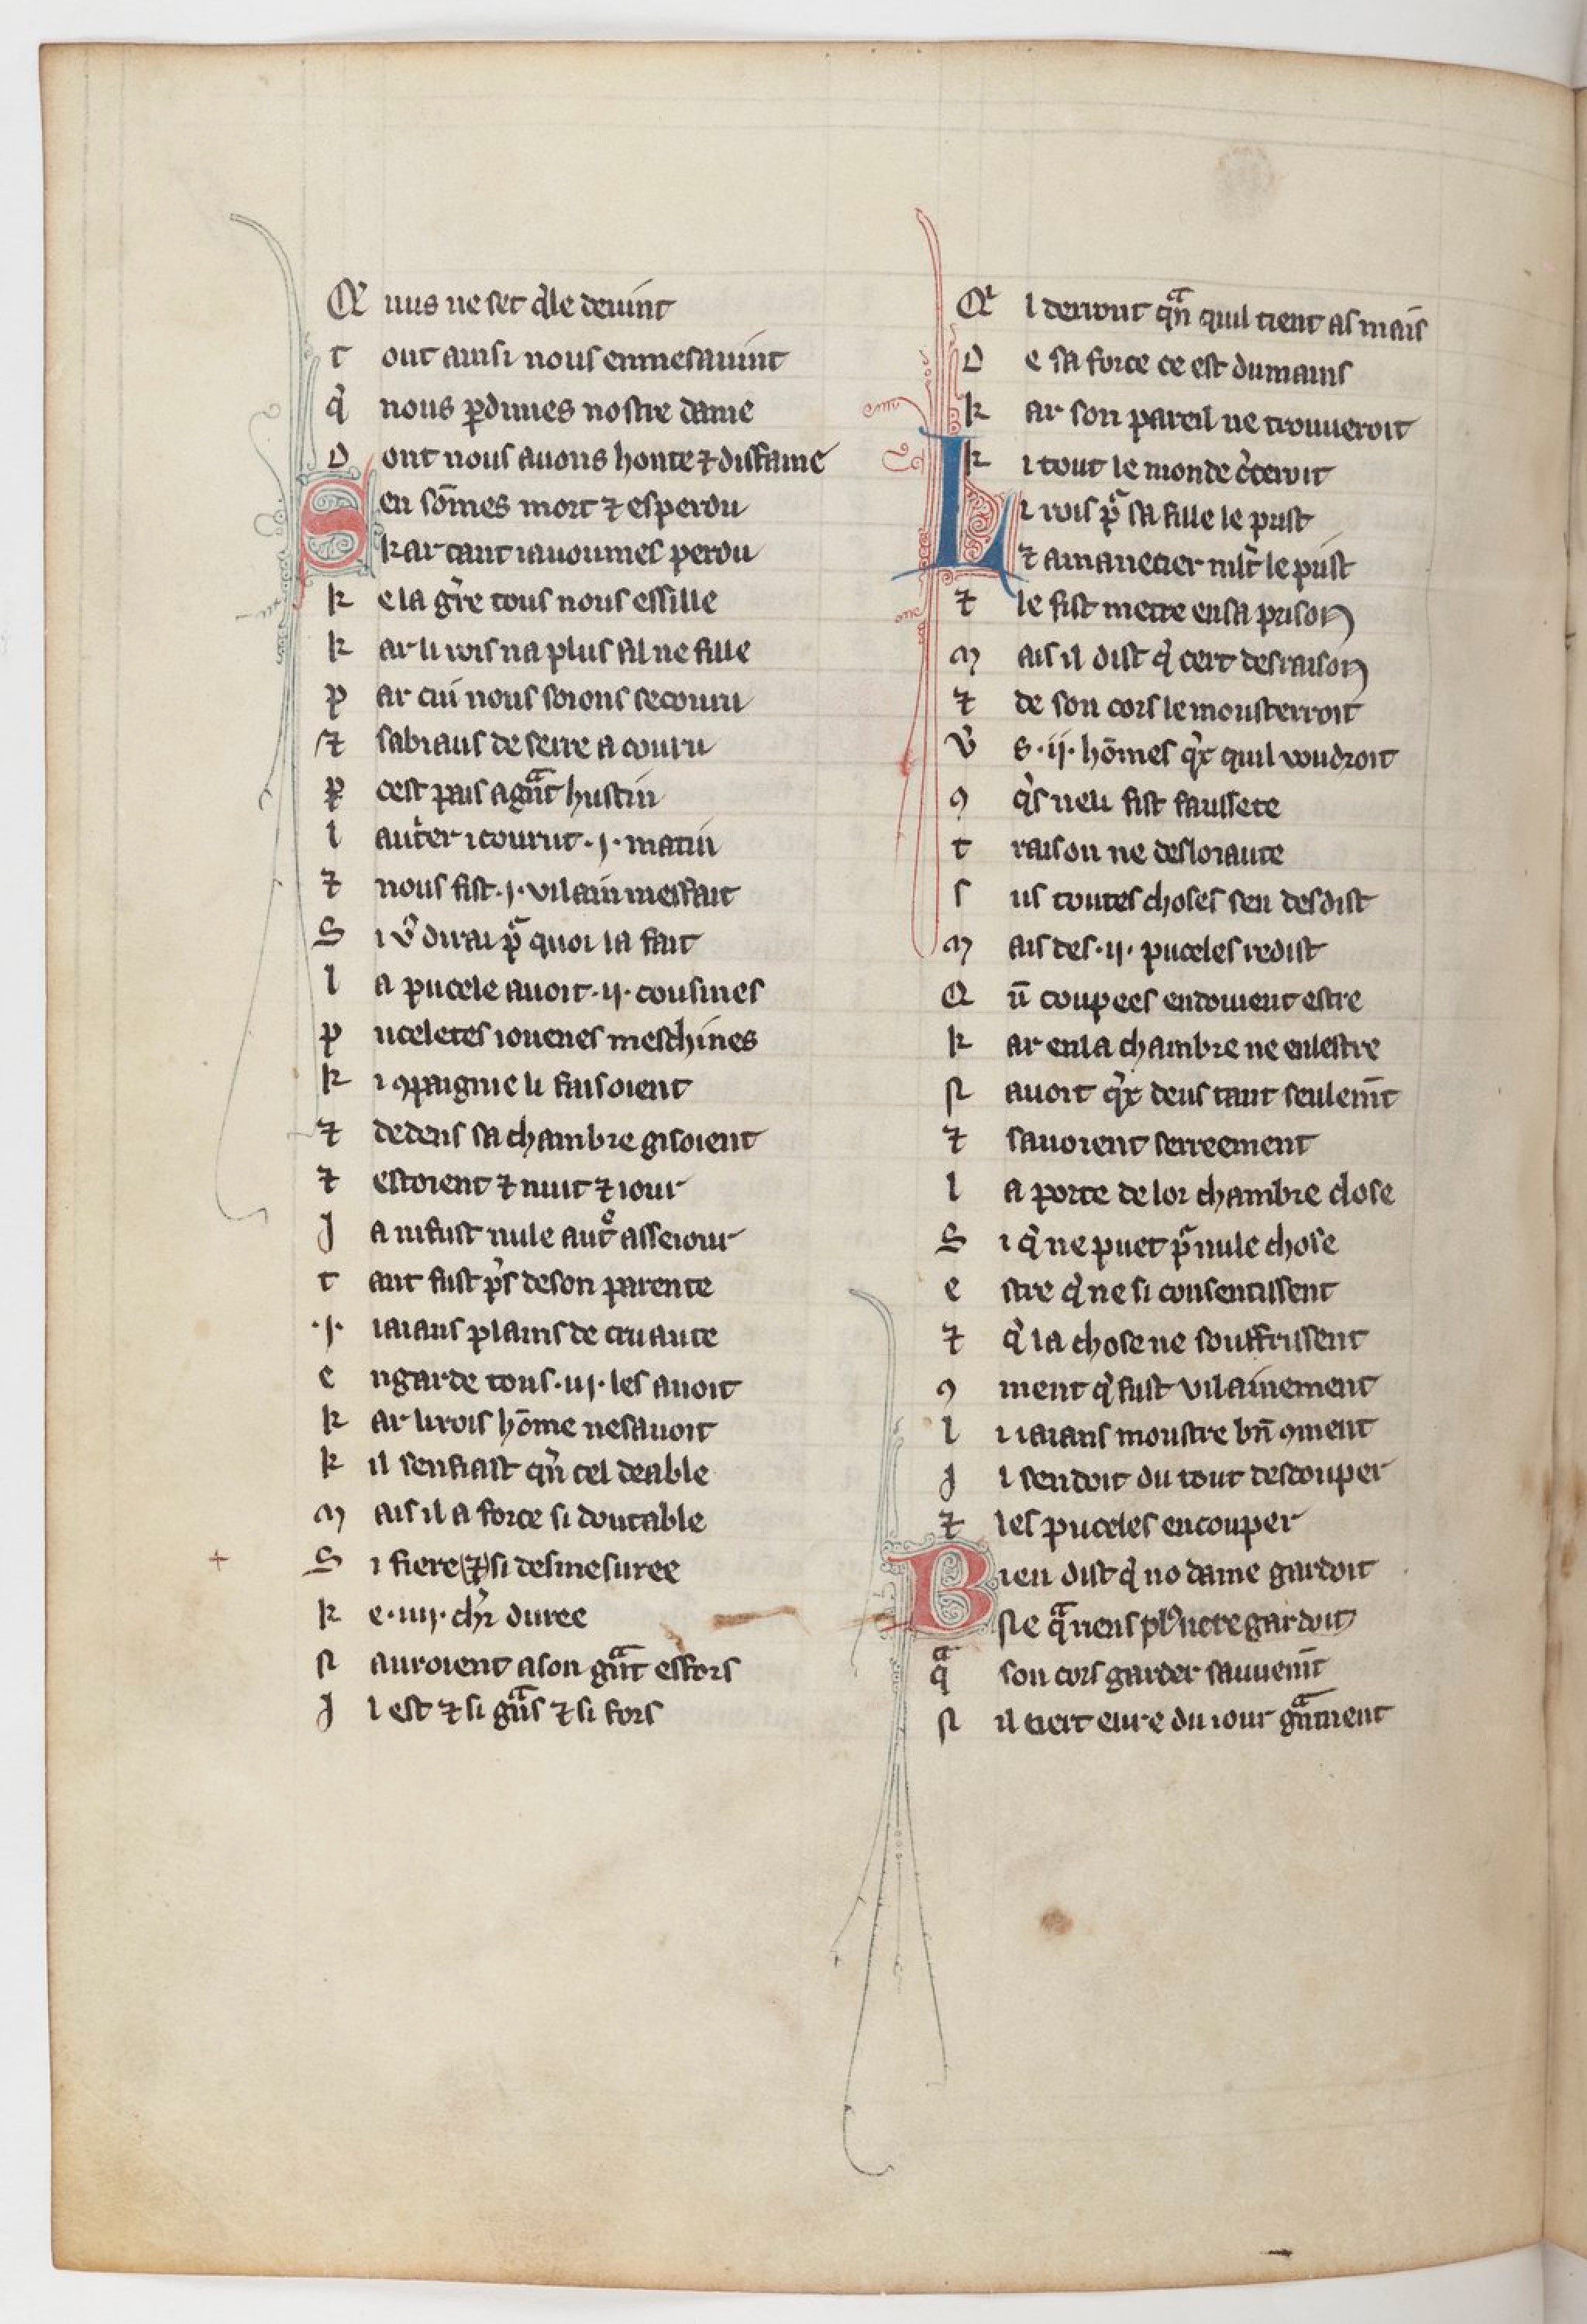 Q nus ne set q̇le deuint
t out ainsi nous enmesauint
q̇ nous ꝑdimes nostre dame
D ont nous auons honte ⁊ diffame
S en sōmes mort ⁊ esperdu
kar tant iauoumes perdu
k e la gr̄re tous nous essille
k ar li rois na plus fil ne fille
p ar cui nous soions secouru
⁊ sabraus de serre a couru
ꝑ cest pais a gᵃnt hustin
l autrer i courut .j. matin
⁊ nous fist .j. vilain mesfait
S i v̾ dirai pᵃ quoi la fait
l a pucele auoit .ij. cousines
p uceletes iouenes meschines
k i ꝯpaignie li faisoient
⁊ dedens sa chambre gisoient
⁊ estoient ⁊ nuit ⁊ iour
J a ni fust nule autᵉ asseiour
t ant fust pr̄s de son parente
.j. iaians plains de cruaute
e ngarde tous .iij. les auoit
k ar li rois hōme ne sauoit
k il senfiast qn̄ cel deable
M ais il a force si doutable
S i fiere ⁊ si desmesuree
k e .iiij. chr̄ duree
N auroient a son gᵃnt effors
J l est ⁊ si gᵃns ⁊ si fors
Q i deront qᵃn quil tient as mais
D e sa force ce est du mains
k ar son pareil ne trouueroit
k i tout le monde c̾ceroit
L i rois pᵃ sa fille le prist
⁊ amanecier mlt̄ le prist
⁊ le fist metre en sa prison
M ais il dist q̇ cert desraison
⁊ de son cors le mousterroit
V̾ s .ij. hōmes q̇x quil voudroit
ꝯ q̇s nen fist faussete
t raison ne desloiaute
s us toutes choses sen desdist
M ais des .ij. puceles redist
Q ū coupees en doiuent estre
k ar en la chambre ne en lestre
N auoit q̇x deus tant seulem̄t
⁊ sauoient serreement
l a porte de lor chambre close
S i q̇ ne puet pᵃ nule chose
e stre q̇ ne si consentissent
⁊ q̇ la chose ne souffrissent
ꝯ ment q̇ fust vilainement
l i iaians moustre bn̄ ꝯment
J l sen doit du tout descouper
⁊ les puceles encouper
B ien dist q̇ no dame gardoit
Ne qᵃ riens plꝰ ne regardoit
qᵃ son cors garder sauuem̄t
N il niert eure du iour gᵃnment